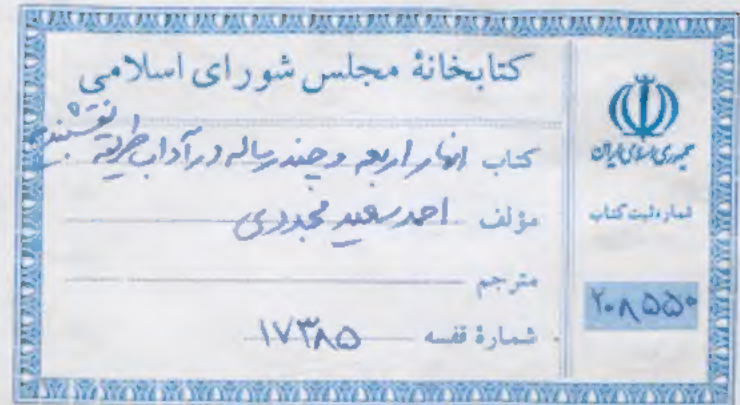 کتابخانهٔ مجلس شورای اسلامی
کتاب انهار اربعه و چند رساله در آداب طریقه نقشبندیه
مؤلف احمد سعید مجددی
مترجم
شمارهٔ قفسه ۱۷۳۸۵
جمهوری اسلامی ایران
شماره ثبت کتاب
۲۰۸۵۵۰